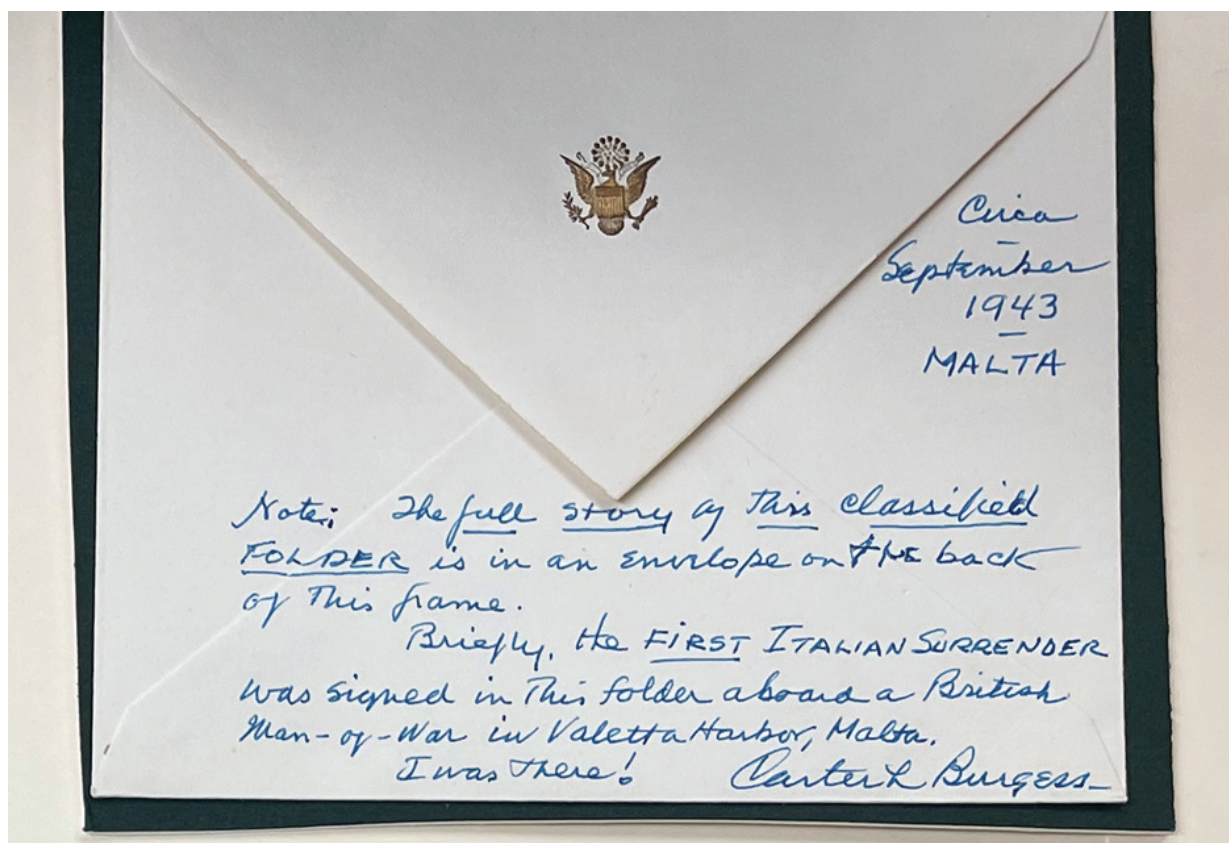 Circa
September
1943
MALTA
Note: The full story of this classified
FOLDER is in an envelope on the back
of this frame.
Briefly, the FIRST ITALIAN SURRENDER
was signed in this folder aboard a British
Man-of-War in Valetta Harbor, Malta.
I was there! Carter L Burgess